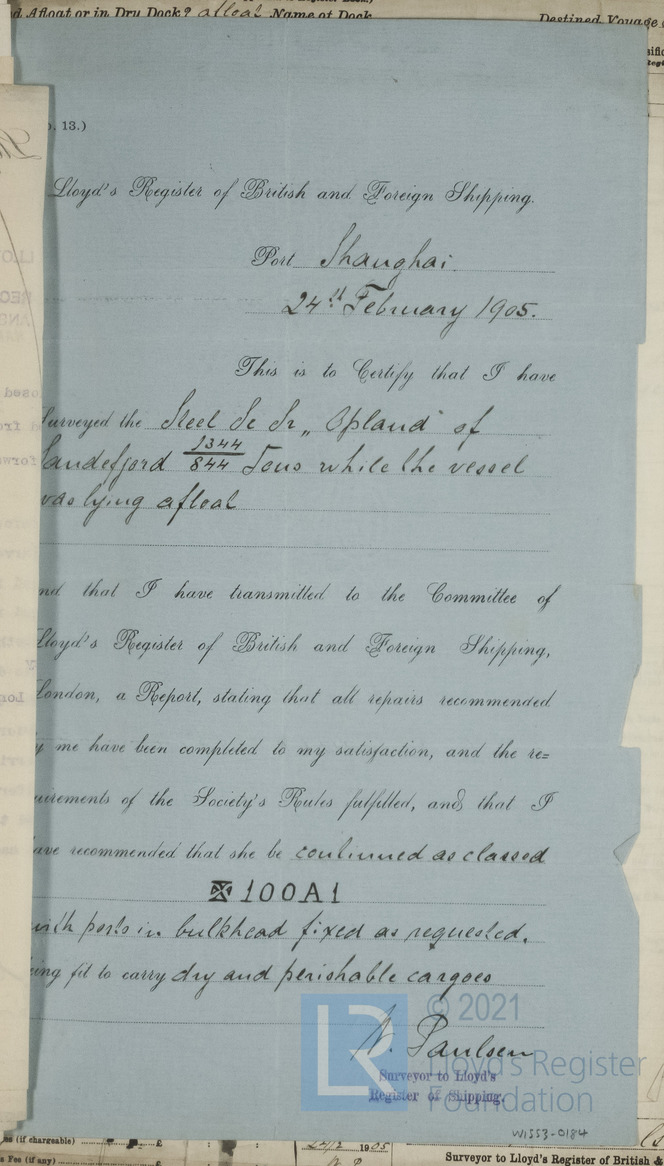 d Afloat or in Dry Dock? afloat Name of Dock
Destined Voyage
. 13.)
Lloyd's Register of British and Foreign Shipping.
Port Shanghai.
24th February 1905.
This is to Certify that I have
Surveyed the Steel Sc Sr „Opland" of
Sandefjord 1344/844 Tons while the vessel
was lying afloat
nd that I have transmitted to the Committee of
Lloyd's Register of British and Foreign Shipping,
London, a Report, stating that all repairs recommended
y me have been completed to my satisfaction, and the re=
uirements of the Society's Rules fulfilled, and that I
ave recommended that she be continued as classed
✠ 100A1
with ports in bulkhead fixed as requested.
ing fit to carry dry and perishable cargoes
N. Paulsen
Surveyor to Lloyd's
Register of Shipping.
LR © 2021
Lloyd's Register
Foundation
W1553-0184
es (if chargeable) £ : : 1905
s Fee (if any) £
Surveyor to Lloyd's Register of British &